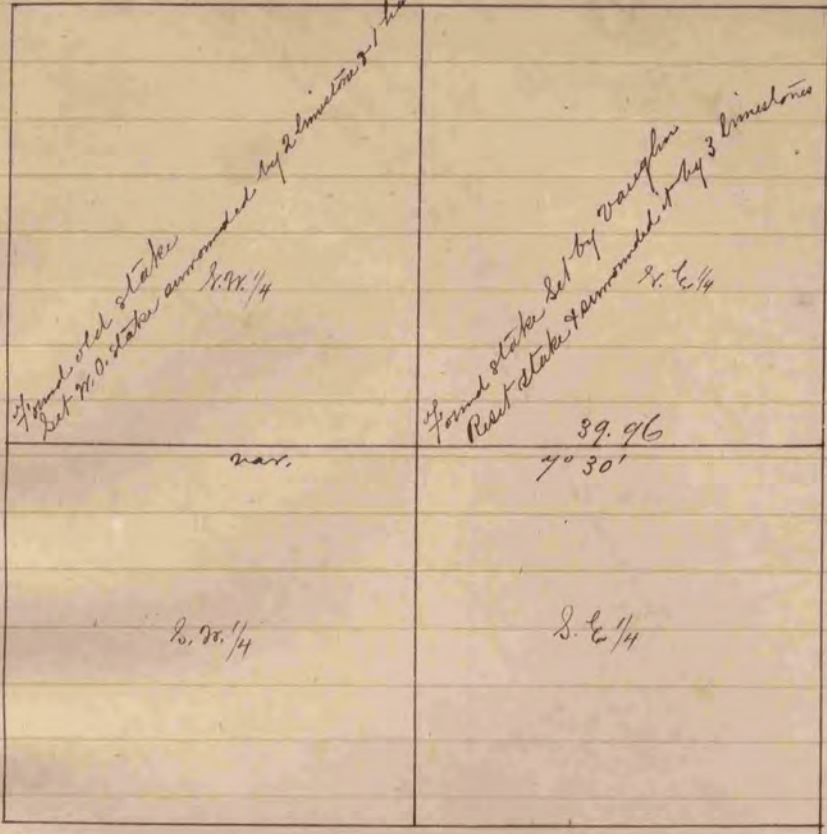 Found old stake
Set W.O. stake surrounded by 2 limestone & 1 ha
N.W. 1/4
Found stake Set by Vaughn
Reset stake & surrounded it by 3 limestones
N. E. 1/4
39.96
var.
7° 30'
S. W. 1/4
S. E 1/4